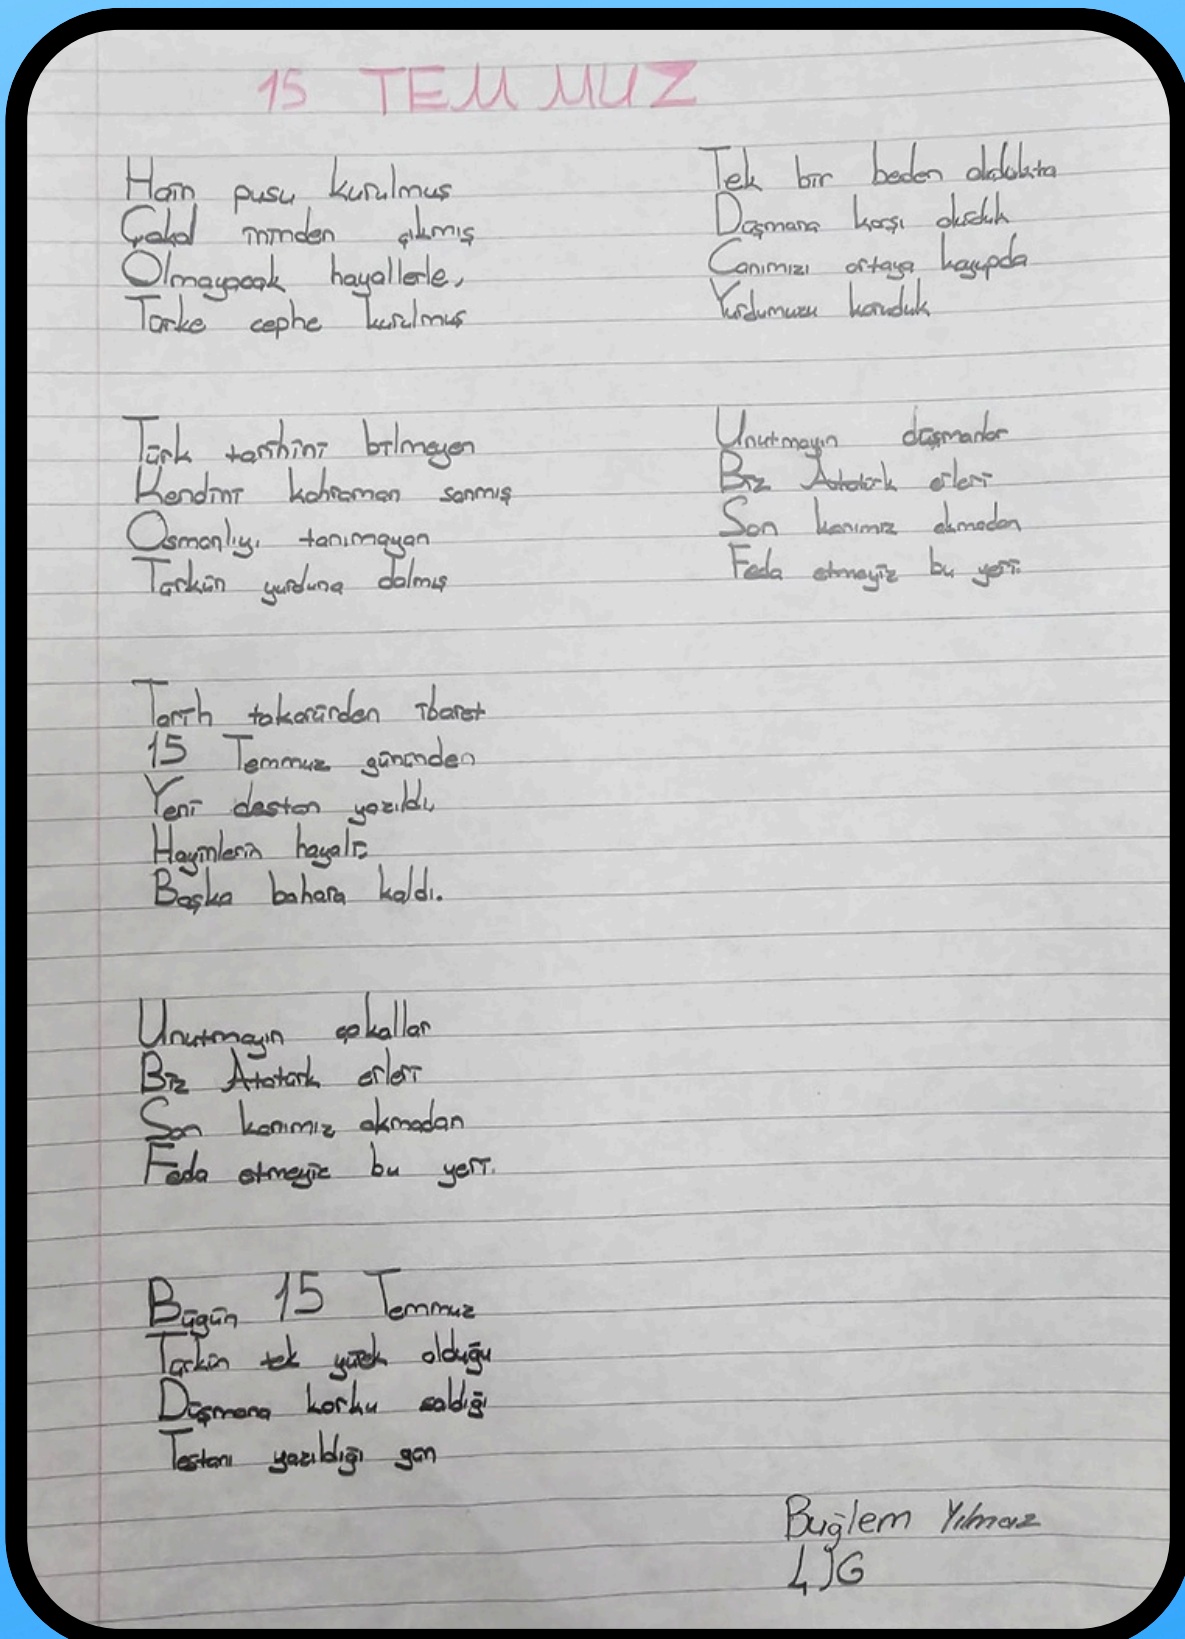 15 TEMMUZ
Hain pusu kurulmuş
Çakal ininden çıkmış
Olmayacak hayallerle,
Türke cephe kurulmuş
Türk tarihini bilmeyen
Kendini kahraman sanmış
Osmanlıyı tanımayan
Türkün yurduna dalmış
Tarih tekerürden ibaret
15 Temmuz gününden
Yeni destan yazıldı,
Hayinlerin hayali;
Başka bahara kaldı.
Unutmayın çakallar
Biz Atatürk erleri
Son kanımız akmadan
Feda etmeyiz bu yeri.
Bügün 15 Temmuz
Türkün tek yürek olduğu
Düşmana korku saldığı
Testanı yazıldığı gün
Tek bir beden oldukta
Düşmana karşı durduk
Canımızı ortaya koyupda
Yurdumuzu koruduk
Unutmayın düşmanlar
Biz Atatürk erleri
Son kanımız akmadan
Feda etmeyiz bu yeri.
Buğlem Yılmaz
4/G